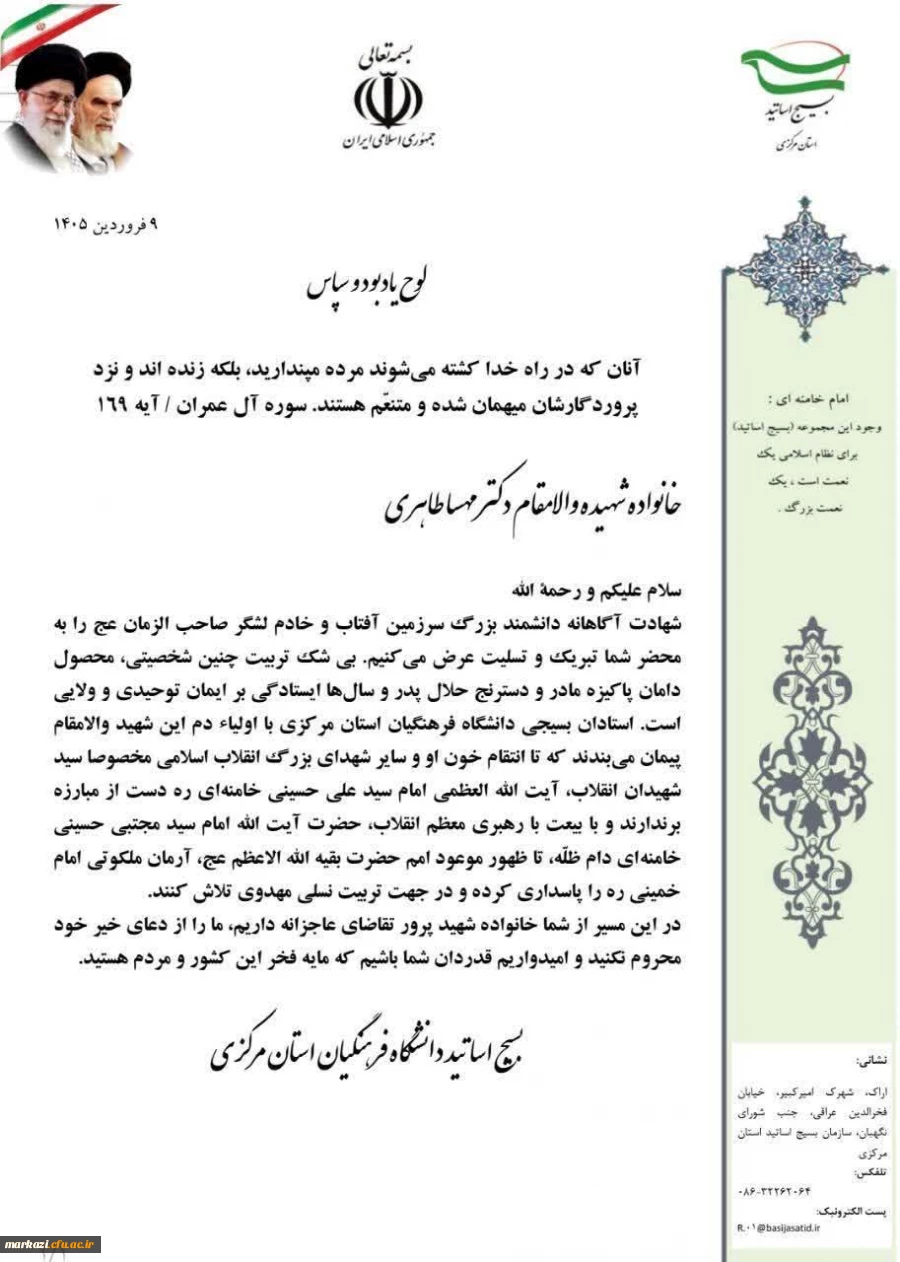 بسمه تعالی
جمهوری اسلامی ایران
بسیج اساتید
استان مرکزی
۹ فروردین ۱۴۰۵
لوح یادبود و سپاس
آنان که در راه خدا کشته می‌شوند مرده مپندارید، بلکه زنده اند و نزد
پروردگارشان میهمان شده و متنعّم هستند. سوره آل عمران / آیه ۱۶۹
خانواده شهیده والامقام دکتر مهسا طاهری
سلام علیکم و رحمة الله
شهادت آگاهانه دانشمند بزرگ سرزمین آفتاب و خادم لشگر صاحب الزمان عج را به
محضر شما تبریک و تسلیت عرض می‌کنیم. بی شک تربیت چنین شخصیتی، محصول
دامان پاکیزه مادر و دسترنج حلال پدر و سال‌ها ایستادگی بر ایمان توحیدی و ولایی
است. استادان بسیجی دانشگاه فرهنگیان استان مرکزی با اولیاء دم این شهید والامقام
پیمان می‌بندند که تا انتقام خون او و سایر شهدای بزرگ انقلاب اسلامی مخصوصا سید
شهیدان انقلاب، آیت الله العظمی امام سید علی حسینی خامنه‌ای ره دست از مبارزه
برندارند و با بیعت با رهبری معظم انقلاب، حضرت آیت الله امام سید مجتبی حسینی
خامنه‌ای دام ظلّه، تا ظهور موعود امم حضرت بقیه الله الاعظم عج، آرمان ملکوتی امام
خمینی ره را پاسداری کرده و در جهت تربیت نسلی مهدوی تلاش کنند.
در این مسیر از شما خانواده شهید پرور تقاضای عاجزانه داریم، ما را از دعای خیر خود
محروم نکنید و امیدواریم قدردان شما باشیم که مایه فخر این کشور و مردم هستید.
بسیج اساتید دانشگاه فرهنگیان استان مرکزی
امام خامنه ای :
وجود این مجموعه (بسیج اساتید)
برای نظام اسلامی یک
نعمت است ، یک
نعمت بزرگ .
نشانی:
اراک، شهرک امیرکبیر، خیابان
فخرالدین عراقی، جنب شورای
نگهبان، سازمان بسیج اساتید استان
مرکزی
تلفکس:
۰۸۶-۳۲۲۶۲۰۶۴
پست الکترونیک:
R.۰۱@basijasatid.ir
markazi.cfu.ac.ir